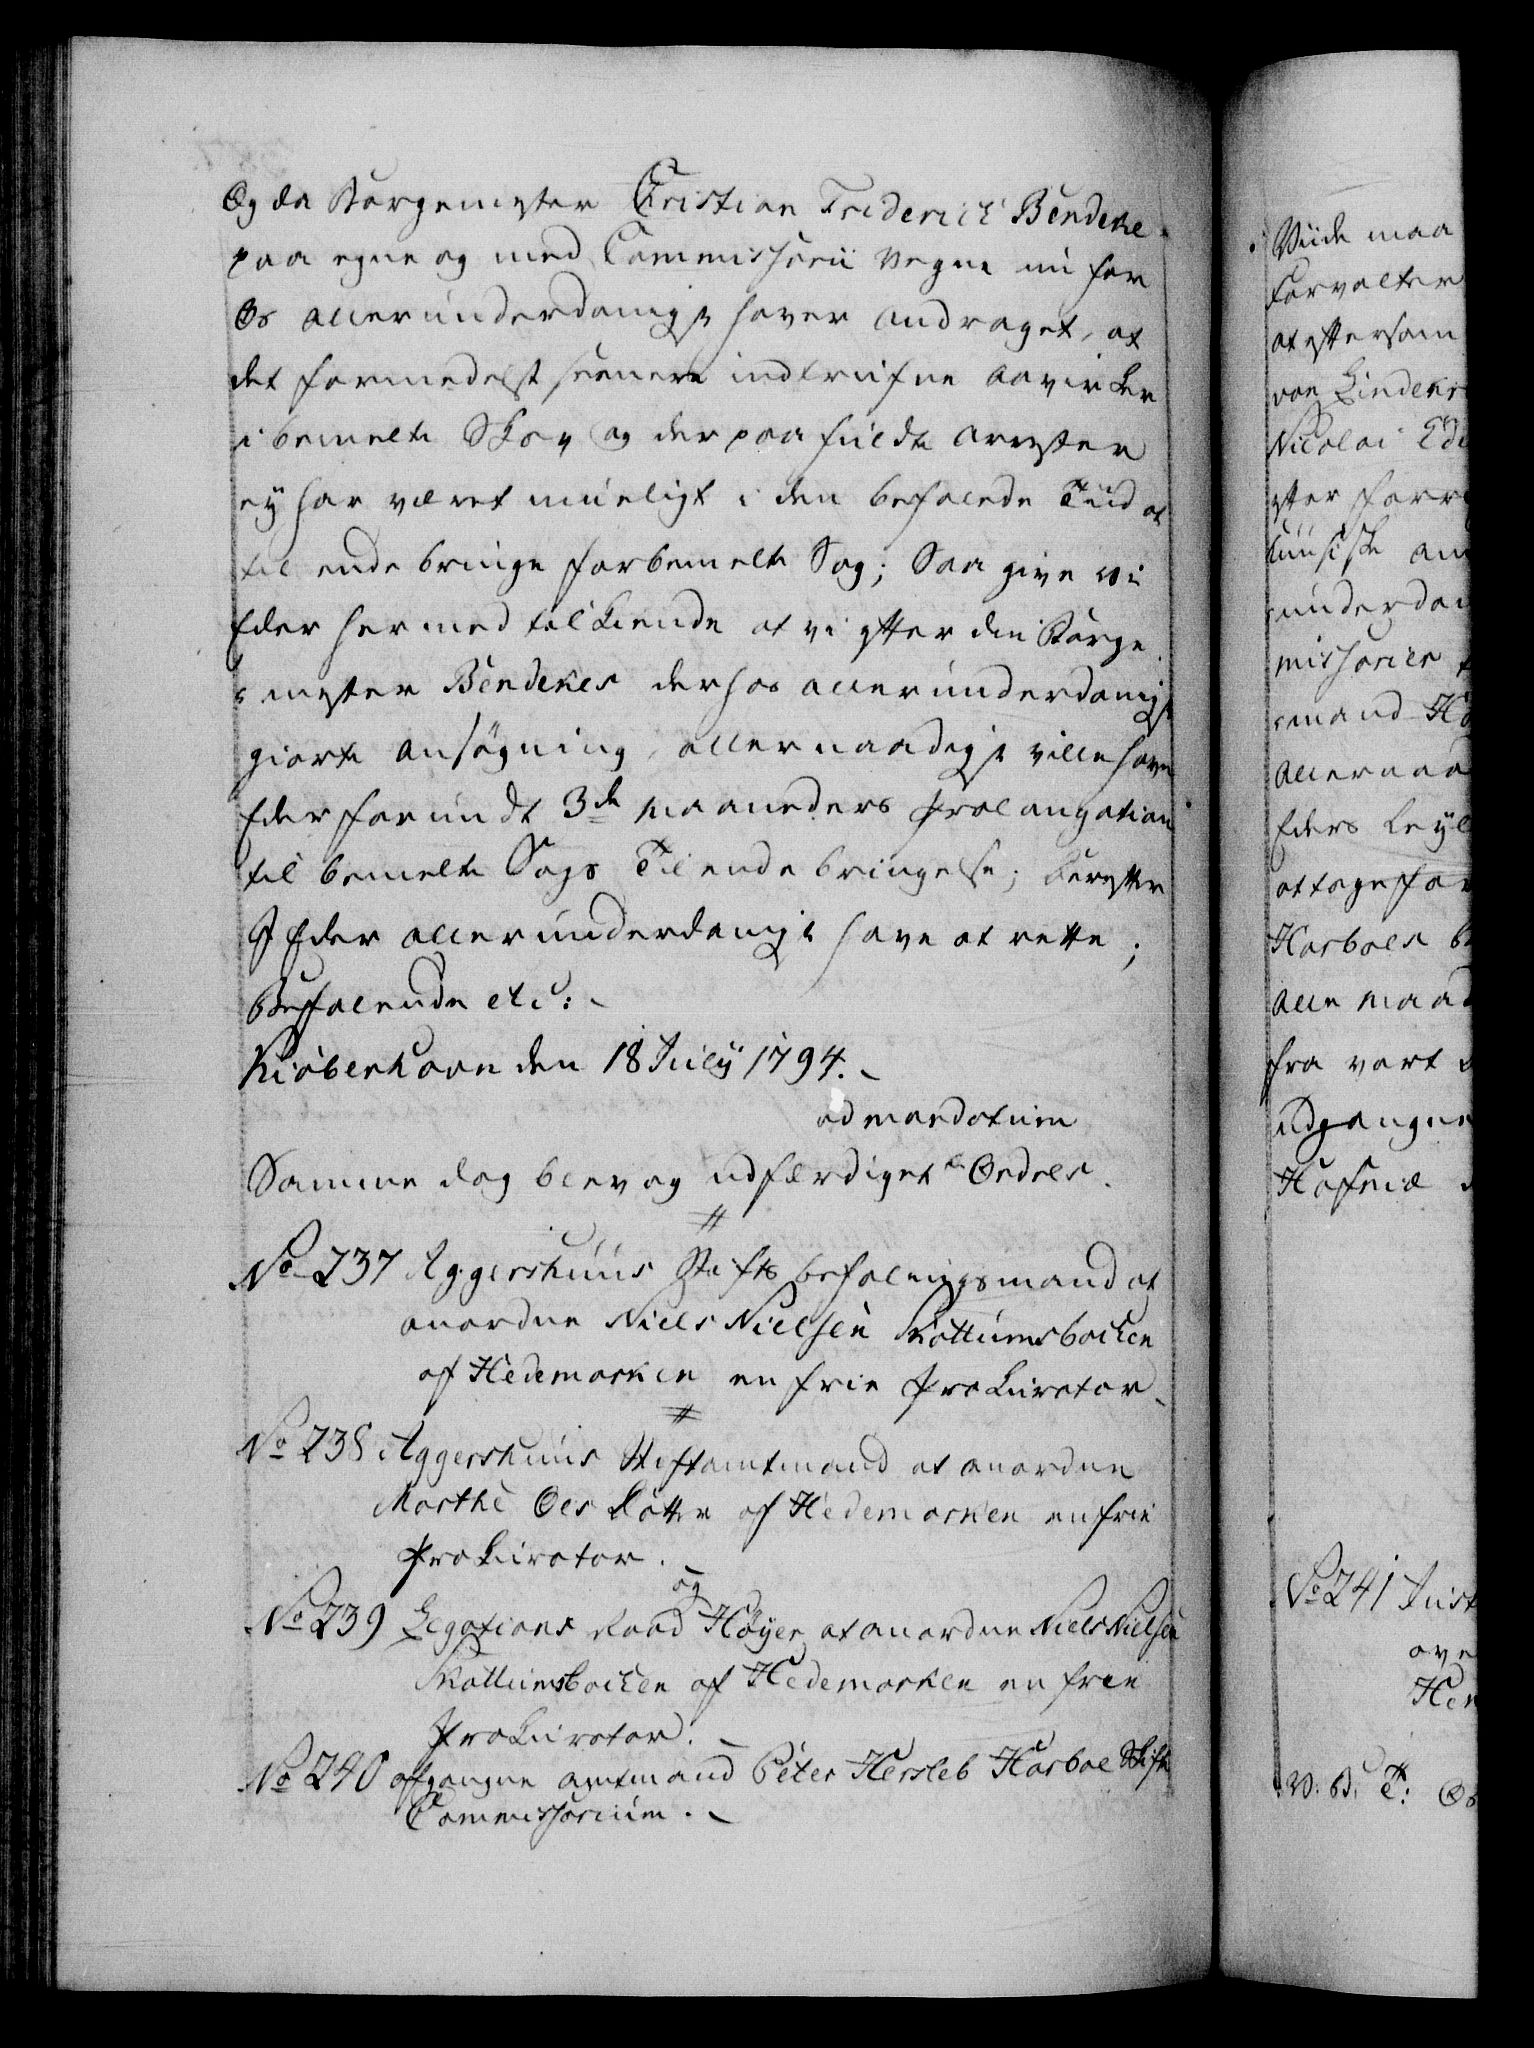 Og da Borgemester Christian Friderich Bendeke
paa egne og med Commissarii Vegne nu for
Os allerunderdanigst haver andraget, at
det formedelst seenere indtrufne
i bemelte Skov og derpaa fuldte arrester
ej har været mueligt i den befalede Tiid at
til ende bringe forbemelte Sag; Saa give vi
Eder hermed tilkiende at vi efter den Borge
mester Bendekes derhos allerunderdanigst
giorte ansøgning, allernaadigst ville have
Eder forundt 3de Maaneders Prolongation
til bemelte Sags Tilendebringelse; derefter
I Eder allerunderdanigst have at rette;
Befalende etc:
Kiøbenhavn den 18 Julij 1794.
ad mandatum
Samme dag blev og udfærdiget Ordrer.
No 237 Aggershuus Stiftsbefalingsmand at
anordne Niels Nielsen Kattumsbachen
af Hedemarken en frie Prokurator
No 238 Aggershuus Stiftamtmand at anordne
Marthe Ols Datter af Hedemarken en frie
Prokurator.
og
No 239 Legations Raad Høyer at anordne Niels Nielsen
Kattumsbachen af Hedemarken en frie
Prokurator.
No 240 afgangne amtmand Peter Hersleb Harboe Skifte
Commissarium.
Viide maa
Forvalter
at eftersom
von Linders
Nicolai
efter
underdan
missarier
mand
Allernaad
Eders
at tage for
Harboes
alle maad
fra vort
udgangne
Hafniæ
No 241 Just
ove
Her
V. B. T: